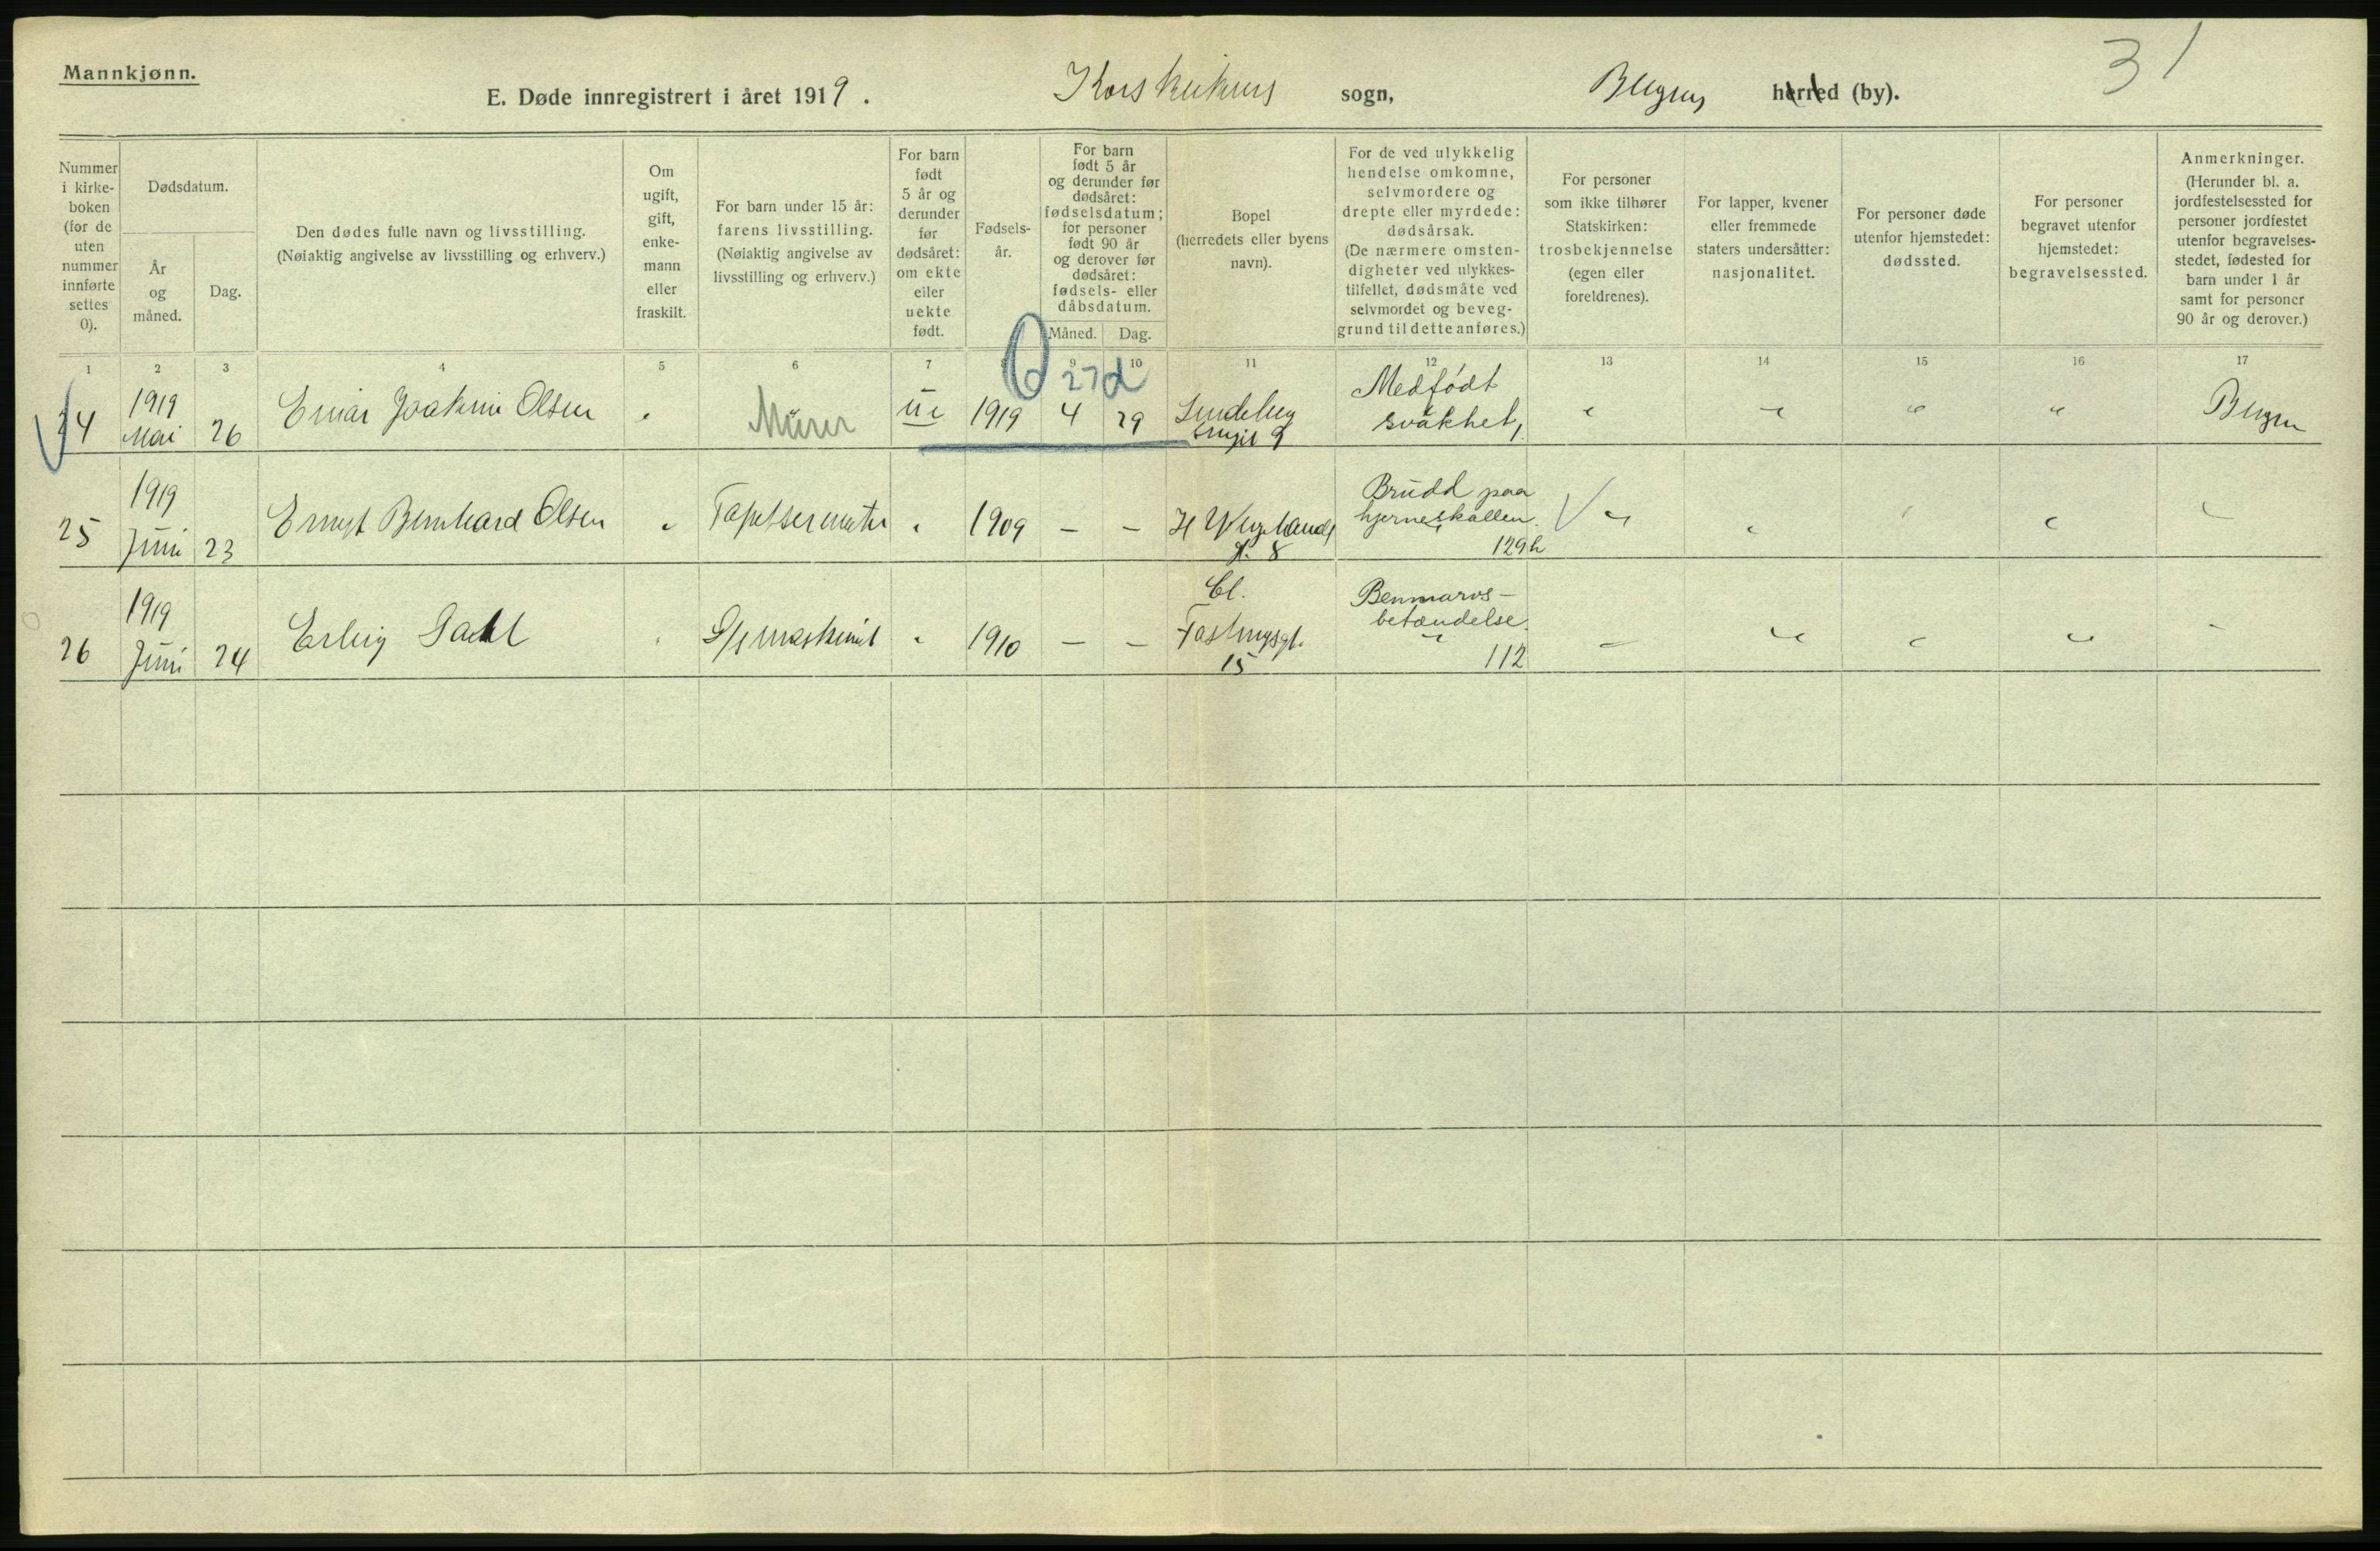 Mannkjønn.
E. Døde innregistrert i året 1919. Korskirkens sogn, Bergens herred (by).
31
Nummer i kirke- boken (for de uten nummer innførte settes 0).
Dødsdatum.
År og måned.
Dag.
Den dødes fulle navn og livsstilling.
(Nøiaktig angivelse av livsstilling og erhverv.)
Om ugift, gift, enke- mann eller fraskilt.
For barn under 15 år: farens livsstilling.
(Nøiaktig angivelse av livsstilling og erhverv.)
For barn født 5 år og derunder før dødsåret: om ekte eller uekte født.
Fødsels- år.
For barn født 5 år og derunder før dødsåret: fødselsdatum; for personer født 90 år og derover før dødsåret: fødsels- eller dåbsdatum.
Måned.
Dag.
Bopel (herredets eller byens navn).
For de ved ulykkelig hendelse omkomne, selvmordere og drepte eller myrdede: dødsårsak.
(De nærmere omsten- digheter ved ulykkes- tilfellet, dødsmåte ved selvmordet og beveg- grund til dette anføres.)
For personer som ikke tilhører Statskirken: trosbekjennelse (egen eller foreldrenes).
For lapper, kvener eller fremmede staters undersåtter: nasjonalitet.
For personer døde utenfor hjemstedet: dødssted.
For personer begravet utenfor hjemstedet: begravelsessted.
Anmerkninger.
(Herunder bl. a. jordfestelsessted for personer jordfestet utenfor begravelses- stedet, fødested for barn under 1 år samt for personer 90 år og derover.)
1 2 3 4 5 6 7 8 9 10 11 12 13 14 15 16 17
0 27 d
24 1919 Mai 26 Einar Joakim Olsen " Murer ue 1919 4 29 Medfödt svakhet, " " " " Bergen
25 1919 Juni 23 Ernst Bernhard Olsen " " 1909 – – H Wergelands gt. 8 Brudd paa hjerneskallen. 129h " " " " "
26 1919 Juni 24 Erling Dahl " " 1910 – – Cl. Fastingsgt. 15 Benmarvs- betændelse. 112 " " " " "